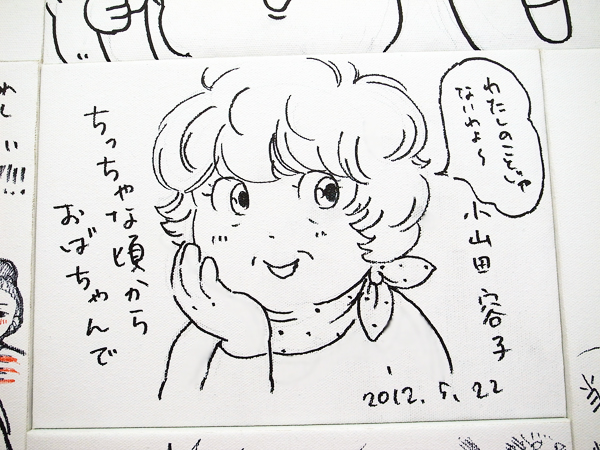 わたしのことじゃ
ないわよ〜
小山田容子
2012.5.22
ちっちゃな頃から
おばちゃんで